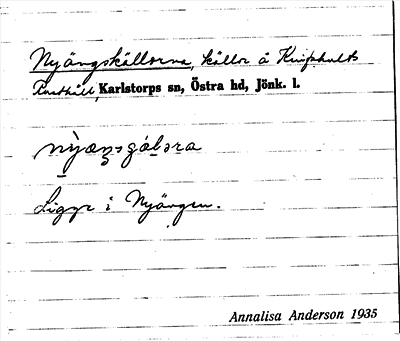 Nyängskällorna, källor å
Karlstorps sn, Östra hd, Jönk. l.
Ligger i Nyängen.
Annalisa Anderson 1935